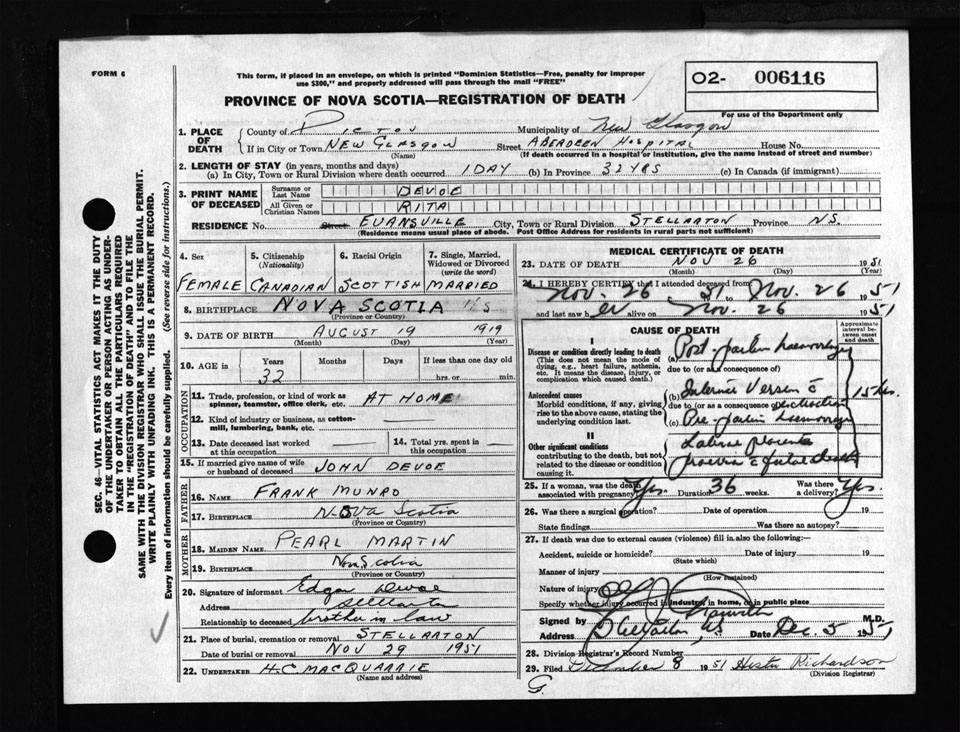 FORM 6
This form, if placed in an envelope, on which is printed "Dominion Statistics—Free, penalty for improper
use $300," and properly addressed will pass through the mail "FREE"
O2- 006116
For use of the Department only
PROVINCE OF NOVA SCOTIA—REGISTRATION OF DEATH
1. PLACE OF DEATH
County of Pictou Municipality of New Glasgow
If in City or Town NEW GLASGOW Street ABERDEEN HOSPITAL House No.
(Name) (If death occurred in a hospital or institution, give the name instead of street and number)
2. LENGTH OF STAY (in years, months and days)
(a) In City, Town or Rural Division where death occurred 1 DAY (b) In Province 32 YRS (c) In Canada (if immigrant)
3. PRINT NAME OF DECEASED
Surname or Last Name DEVOE
All Given or Christian Names RITA
RESIDENCE No. Street EVANSVILLE City, Town or Rural Division STELLARTON Province N.S.
(Residence means usual place of abode. Post Office Address for residents in rural parts not sufficient)
4. Sex FEMALE
5. Citizenship (Nationality) CANADIAN
6. Racial Origin SCOTTISH
7. Single, Married, Widowed or Divorced (write the word) MARRIED
8. BIRTHPLACE NOVA SCOTIA
(Province or Country)
9. DATE OF BIRTH AUGUST 19 1919
(Month) (Day) (Year)
10. AGE in Years Months Days If less than one day old
32 hrs. or min.
OCCUPATION
11. Trade, profession, or kind of work as spinner, teamster, office clerk, etc. AT HOME
12. Kind of industry or business, as cotton-mill, lumbering, bank, etc.
13. Date deceased last worked at this occupation
14. Total yrs. spent in this occupation
15. If married give name of wife or husband of deceased JOHN DEVOE
FATHER
16. NAME FRANK MUNRO
17. BIRTHPLACE NOVA Scotia
(Province or Country)
MOTHER
18. MAIDEN NAME PEARL MARTIN
19. BIRTHPLACE Nova Scotia
(Province or Country)
20. Signature of informant Edgar Devoe
Address Stellarton
Relationship to deceased brother in law
21. Place of burial, cremation or removal STELLARTON
Date of burial or removal NOV 29 1951
22. UNDERTAKER H.C MACQUARRIE
(Name and address)
MEDICAL CERTIFICATE OF DEATH
23. DATE OF DEATH NOV 26 1951
(Month) (Day) (Year)
24. I HEREBY CERTIFY that I attended deceased from
Nov. 26 51 to Nov. 26 1951
and last saw her alive on Nov. 26 1951
CAUSE OF DEATH
Approximate interval between onset and death
I
Disease or condition directly leading to death
(This does not mean the mode of dying, e.g., heart failure, asthenia, etc. It means the disease, injury, or complication which caused death.)
(a) Post-partum haemorrhage
due to (or as a consequence of)
Antecedent causes
Morbid conditions, if any, giving rise to the above cause, stating the underlying condition last.
(b) Internal Version c̄ 15 hrs.
due to (or as a consequence of) extraction
(c) Pre-partum haemorrhage
II
Other significant conditions
contributing to the death, but not related to the disease or condition causing it.
placenta
praevia c̄ foetal death
25. If a woman, was the death associated with pregnancy? Yes. Duration 36 weeks. Was there a delivery? Yes.
26. Was there a surgical operation? Date of operation 19
State findings Was there an autopsy?
27. If death was due to external causes (violence) fill in also the following:—
Accident, suicide or homicide? Date of injury 19
(State which)
Manner of injury
(How sustained)
Nature of injury
Specify whether injury occurred in industry, in home, or in public place
Signed by M.D.
Address Stellarton, N.S. Date Dec. 5 1951
28. Division Registrar's Record Number
29. Filed December 8 1951 Hester Richardson
(Division Registrar)
G.
SEC. 46—VITAL STATISTICS ACT MAKES IT THE DUTY
OF THE UNDERTAKER OR PERSON ACTING AS UNDER-
TAKER TO OBTAIN ALL THE PARTICULARS REQUIRED
IN THE "REGISTRATION OF DEATH" AND TO FILE THE
SAME WITH THE DIVISION REGISTRAR WHO SHALL ISSUE THE BURIAL PERMIT.
WRITE PLAINLY WITH UNFADING INK. THIS IS A PERMANENT RECORD.
Every item of information should be carefully supplied. (See reverse side for instructions.)